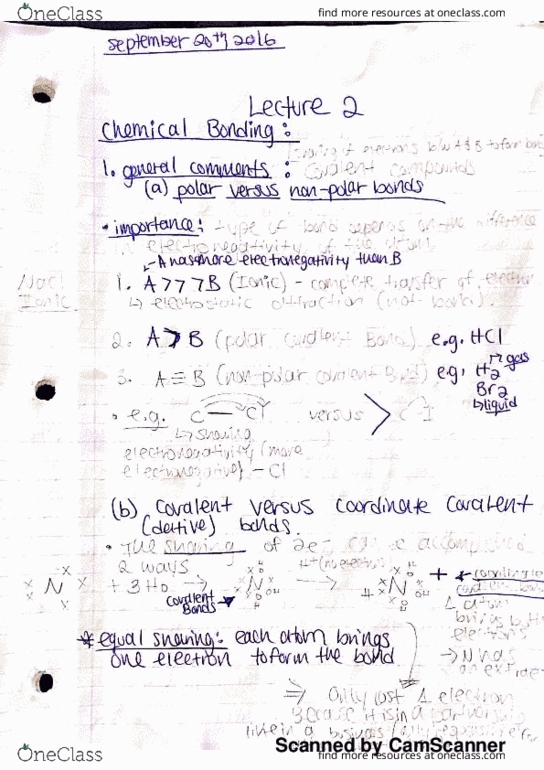 OneClass
find more resources at oneclass.com
september 20th 2016
Lecture 2
Chemical Bonding:
[sharing of electrons b/w A & B to form bond
1. general comments: Covalent compounds
(a) polar versus non-polar bonds
• importance: type of bond depends on the difference
in electronegativity of the atoms
A has more electronegativity than B
NaCl
Ionic
1. A>>>B (Ionic) - complete transfer of electron
↳ electrostatic attraction (not bond).
2. A>B (polar covalent Bond) e.g. HCl
3. A≡B (non-polar covalent Bond) e.g. H2 → gas
Br2
↳ liquid
• e.g. C—Cl versus > C-I
↳ sharing
electronegativity (more
electronegative) - Cl
(b) Covalent versus coordinate covalent
(dative) bonds.
• The sharing of 2e- can be accomplished
2 ways
N + 3H → N → H N H +
H+ (no electron)
covalent
Bonds
1 atom
brings both
electrons
→ N has
an extra e-
* equal sharing: each atom brings
one electron to form the bond
⇒ only lost 1 electron
because it is in a partnership
Scanned by CamScanner
OneClass
find more resources at oneclass.com